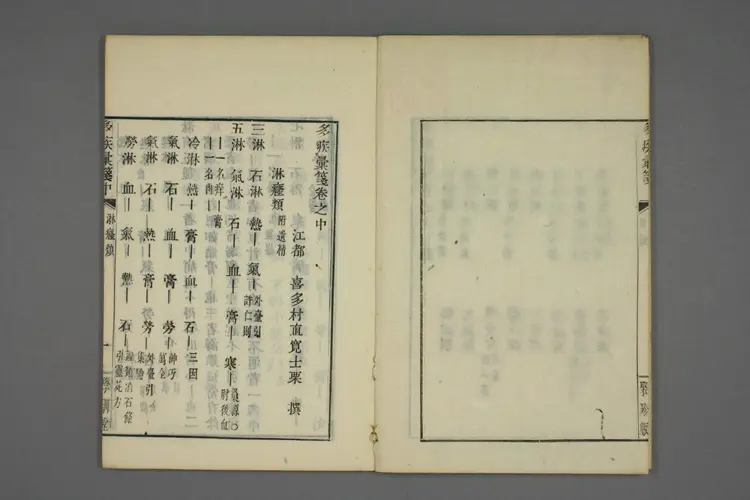 多疾彙箋卷之中
江都 喜多村直寛士栗 撰
淋癃類 附遺精
三淋 石淋 熱｜ 氣｜ 外臺引
五淋 氣淋 石｜ 血｜ 膏｜ 寒｜
｜一名痺｜膏
｜一名肉｜
冷淋 熱｜ 膏｜ 血｜ 石｜ 三因
氣淋 石｜ 血｜ 膏｜ 勞｜
氣淋 石｜ 熱｜ 膏｜ 勞｜ 外臺引集驗
勞淋 血｜ 氣｜ 熱｜ 石｜
多疾彙箋中 淋癃類 一
多疾彙箋